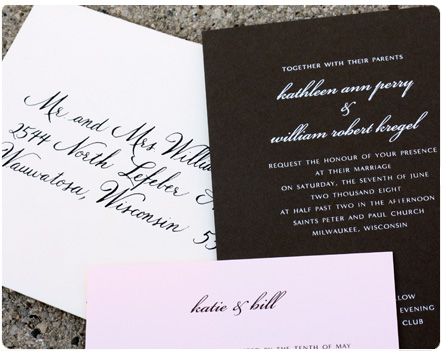 Mr and Mrs
2544 North Lefeber
Wauwatosa, Wisconsin
TOGETHER WITH THEIR PARENTS
kathleen ann perry
&
william robert kregel
REQUEST THE HONOUR OF YOUR PRESENCE
AT THEIR MARRIAGE
ON SATURDAY, THE SEVENTH OF JUNE
TWO THOUSAND EIGHT
AT HALF PAST TWO IN THE AFTERNOON
SAINTS PETER AND PAUL CHURCH
MILWAUKEE, WISCONSIN
EVENING
CLUB
katie & bill
BY THE TENTH OF MAY